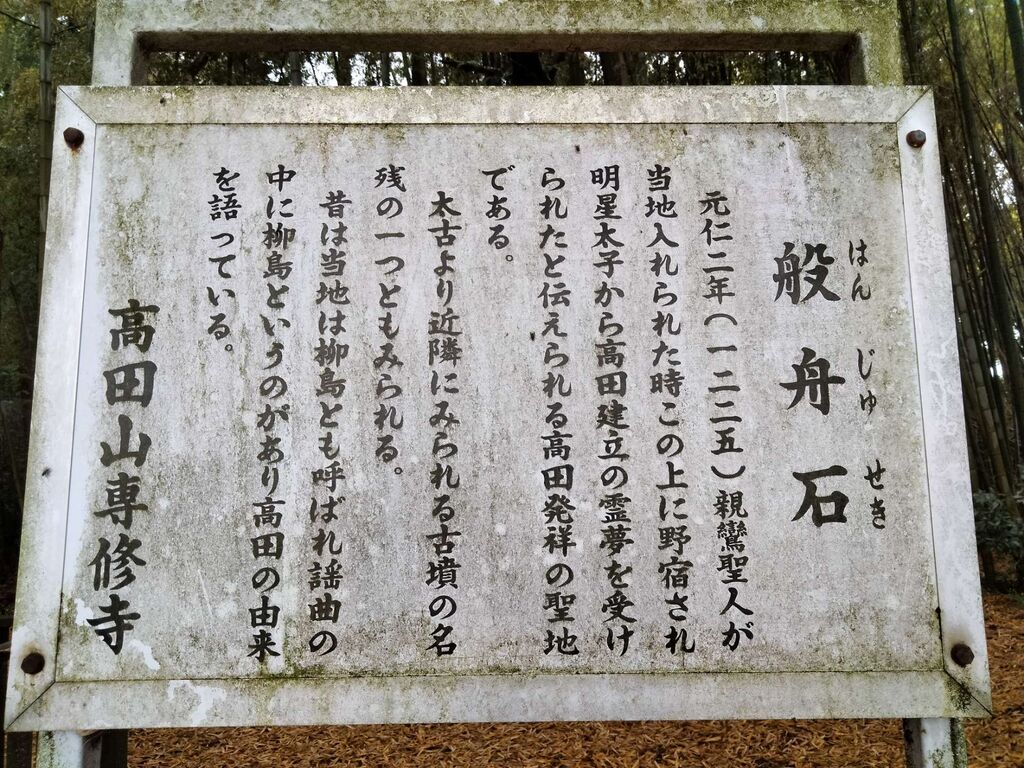 般舟石
はんじゅせき
元仁二年（一二二五）親鸞聖人が
当地入れられた時この上に野宿され
明星太子から高田建立の霊夢を受け
られたと伝えられる高田発祥の聖地
である。
太古より近隣にみられる古墳の名
残の一つともみられる。
昔は当地は柳島とも呼ばれ謡曲の
中に柳島というのがあり高田の由来
を語っている。
高田山専修寺